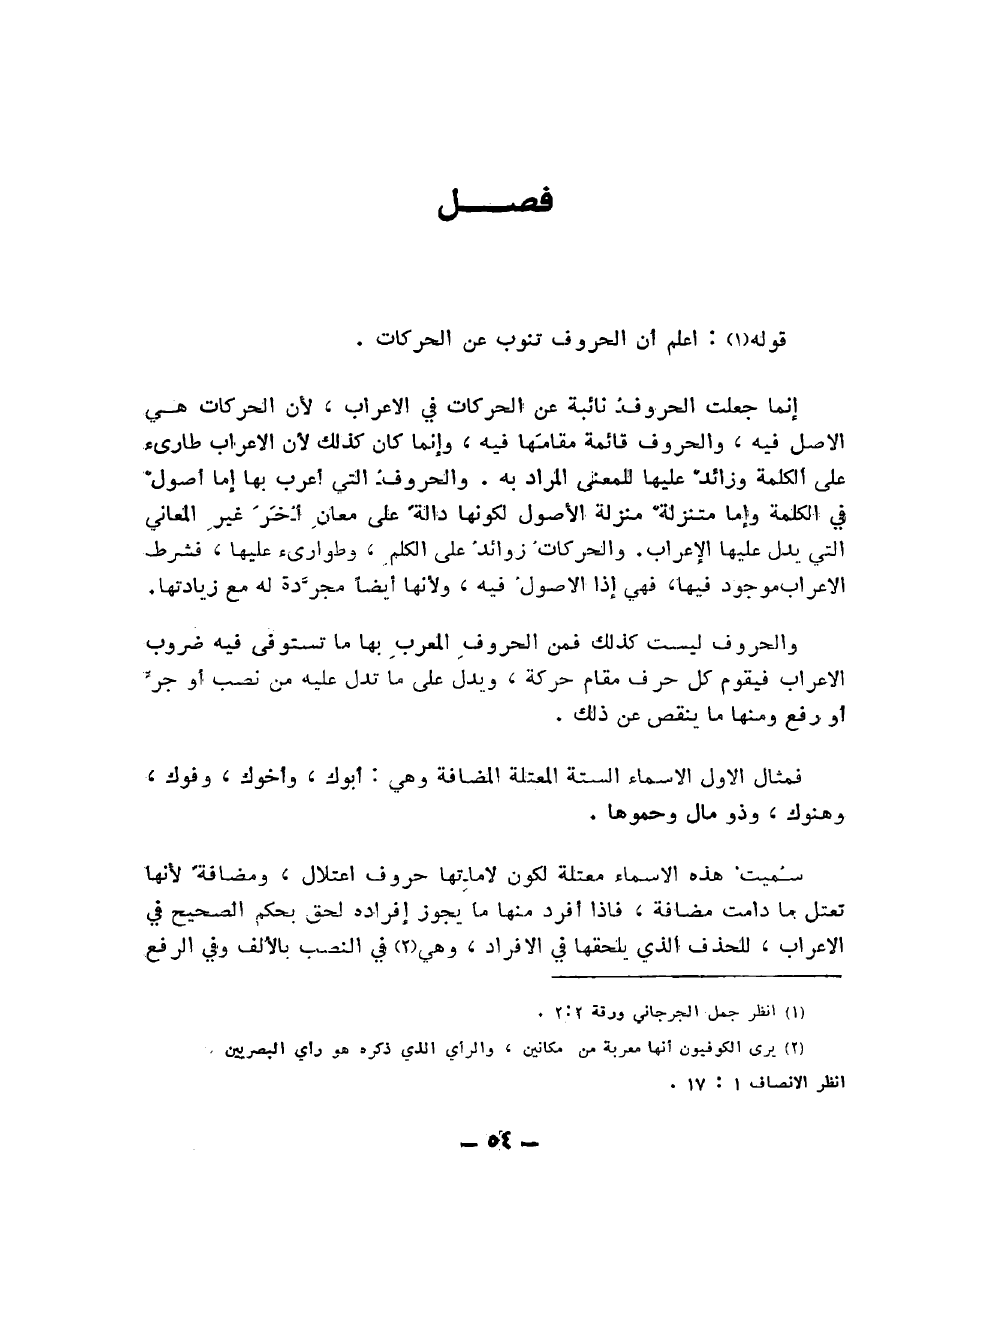 فصـــــل
قوله(١) : اعلم أن الحروف تنوب عن الحركات .
إنما جعلت الحروفُ نائبة عن الحركات في الاعراب ، لأن الحركات هـــي
الاصل فيه ، والحروف قائمة مقامَها فيه ، وإنما كان كذلك لأن الاعراب طارىء
على الكلمة وزائدٌ عليها للمعنى المراد به . والحروفُ التي أعرب بها إما أصولٌ
في الكلمة وإما متنزلةٌ منزلة الأصول لكونها دالةً على معانٍ أُخَرَ غيرِ المعاني
التي يدل عليها الإعراب. والحركاتُ زوائدُ على الكلمِ ، وطوارىء عليها ، فشرط
الاعراب موجود فيها، فهي إذا الاصولُ فيه ، ولأنها أيضاً مجرَّدة له مع زيادتها.
والحروف ليست كذلك فمن الحروفِ المعربِ بها ما تستوفى فيه ضروب
الاعراب فيقوم كل حرف مقام حركة ، ويدل على ما تدل عليه من نصب أو جرٍّ
أو رفع ومنها ما ينقص عن ذلك .
فمثال الاول الاسماء الستة المعتلة المضافة وهي : أبوك ، وأخوك ، وفوك ،
وهنوك ، وذو مال وحموها .
سُميتْ هذه الاسماء معتلة لكون لاماتِها حروف اعتلال ، ومضافةً لأنها
تعتل ما دامت مضافة ، فاذا أفرد منها ما يجوز إفراده لحق بحكم الصحيح في
الاعراب ، للحذف الذي يلحقها في الافراد ، وهي(٢) في النصب بالألف وفي الرفع
(١) انظر جمل الجرجاني ورقة ٢:٢ .
(٢) يرى الكوفيون أنها معربة من مكانين ، والرأي الذي ذكره هو رأي البصريين .
انظر الانصاف ١ : ١٧ .
– ٥٤ –